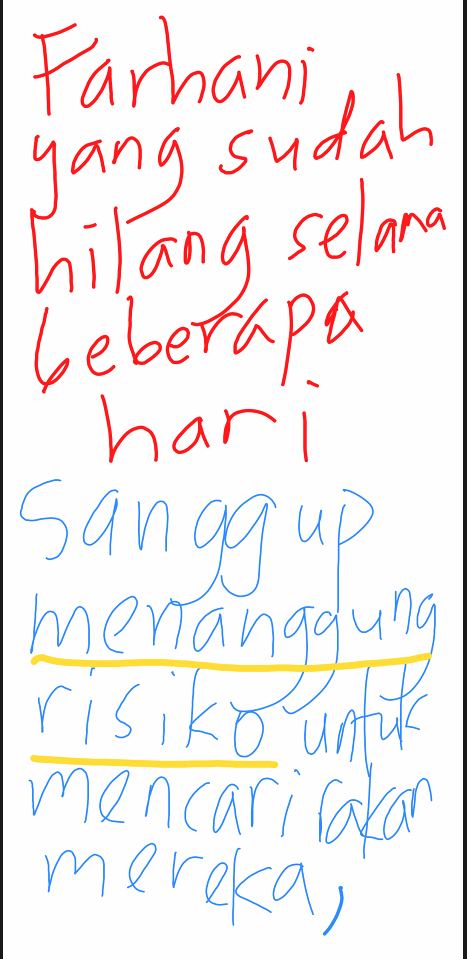 Farhani
yang sudah
hilang selama
beberapa
hari
Sanggup
menanggung
risiko untuk
mencari rakan
mereka,